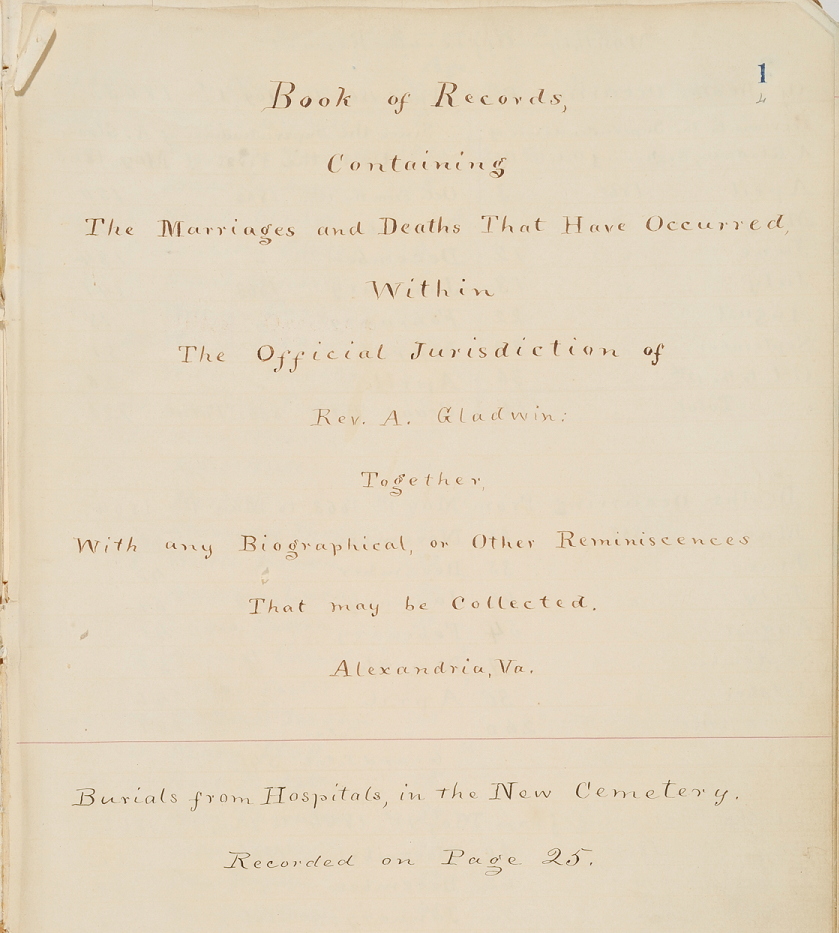 1
4
Book of Records,
Containing
The Marriages and Deaths That Have Occurred,
Within
The Official Jurisdiction of
Rev. A. Gladwin:
Together,
With any Biographical, or Other Reminiscences
That may be Collected.
Alexandria, Va.
Burials from Hospitals, in the New Cemetery.
Recorded on Page 25.